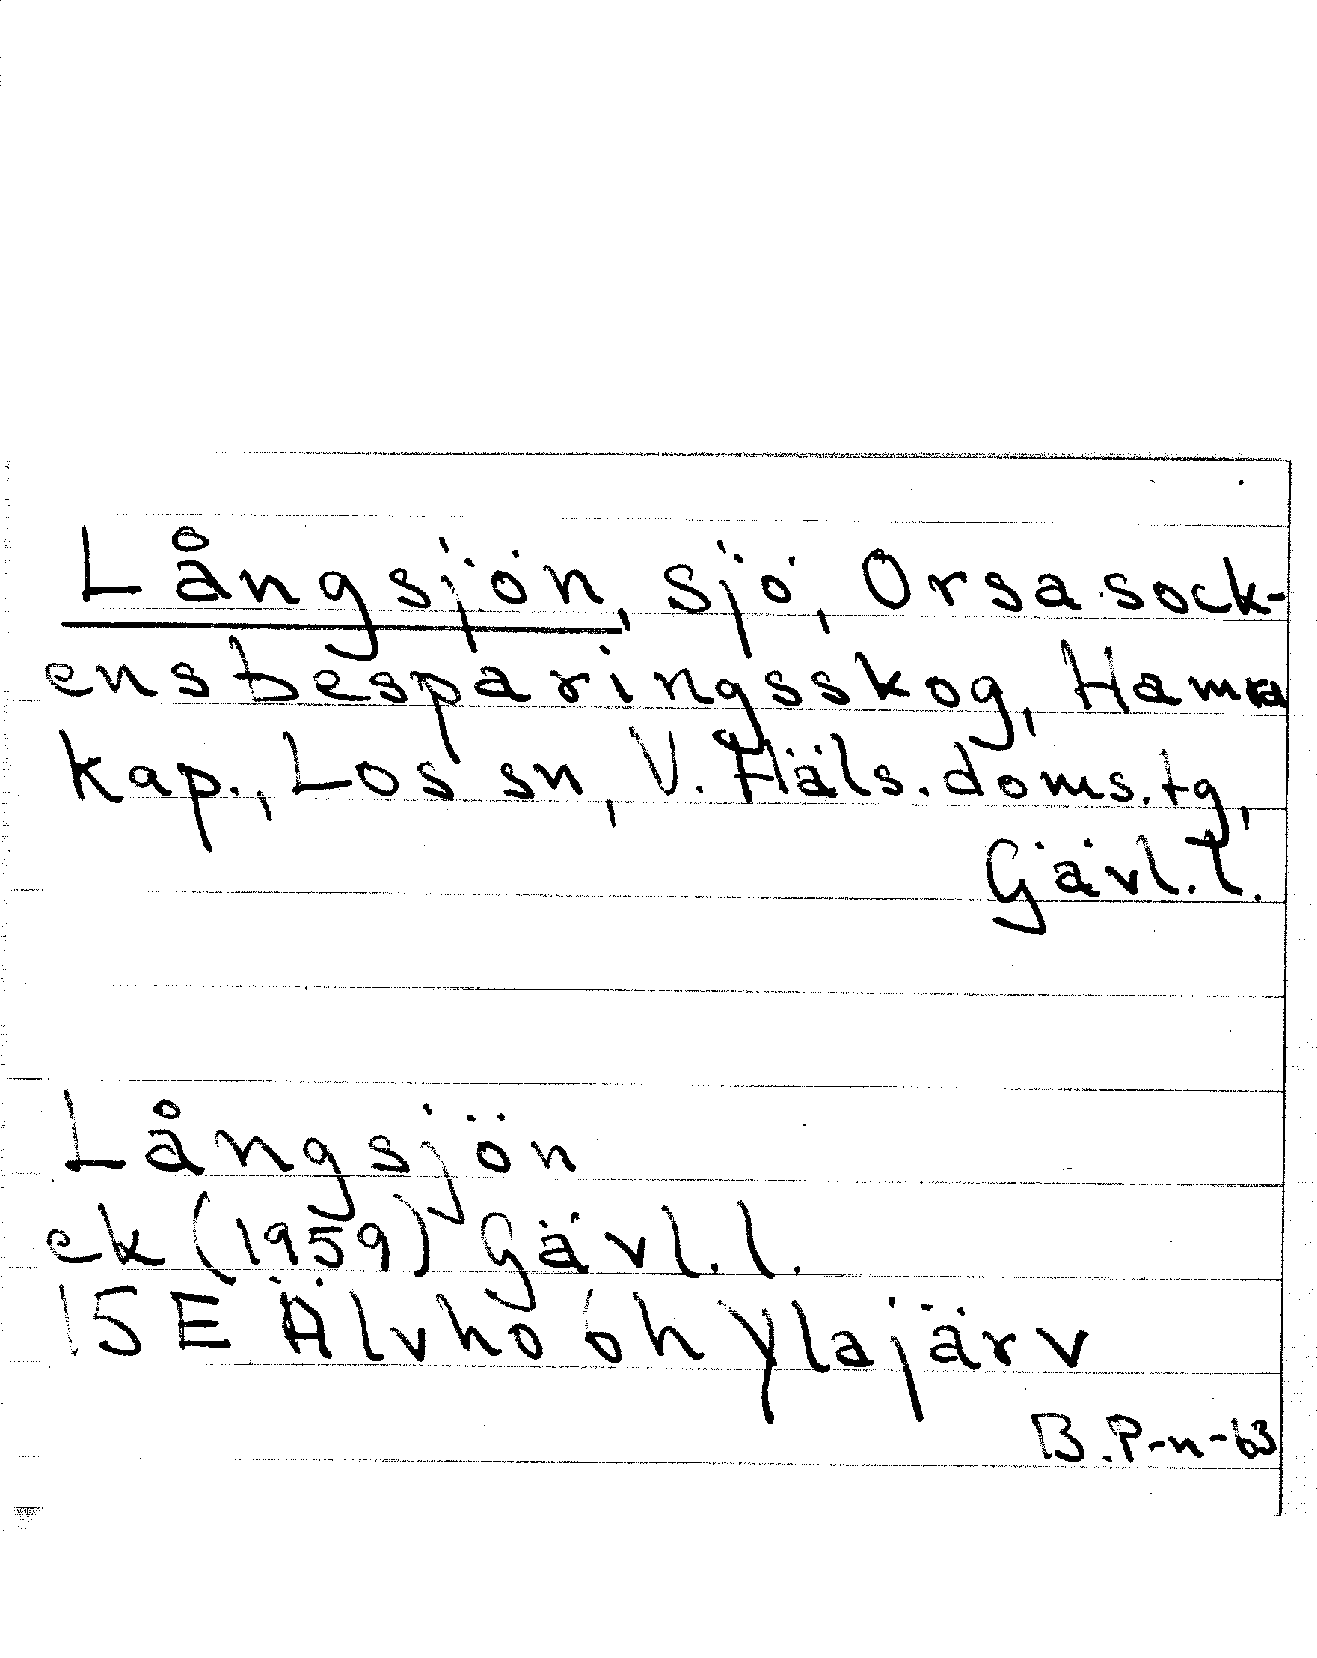 Långsjön, sjö, Orsa sock-
ens besparingsskog, Hamra
kap., Los sn, V. Häls. doms.tg,
Gävl. l.
Långsjön
ek (1959) Gävl. l.
15E Älvho 6h Ylajärv
B. P-n-63